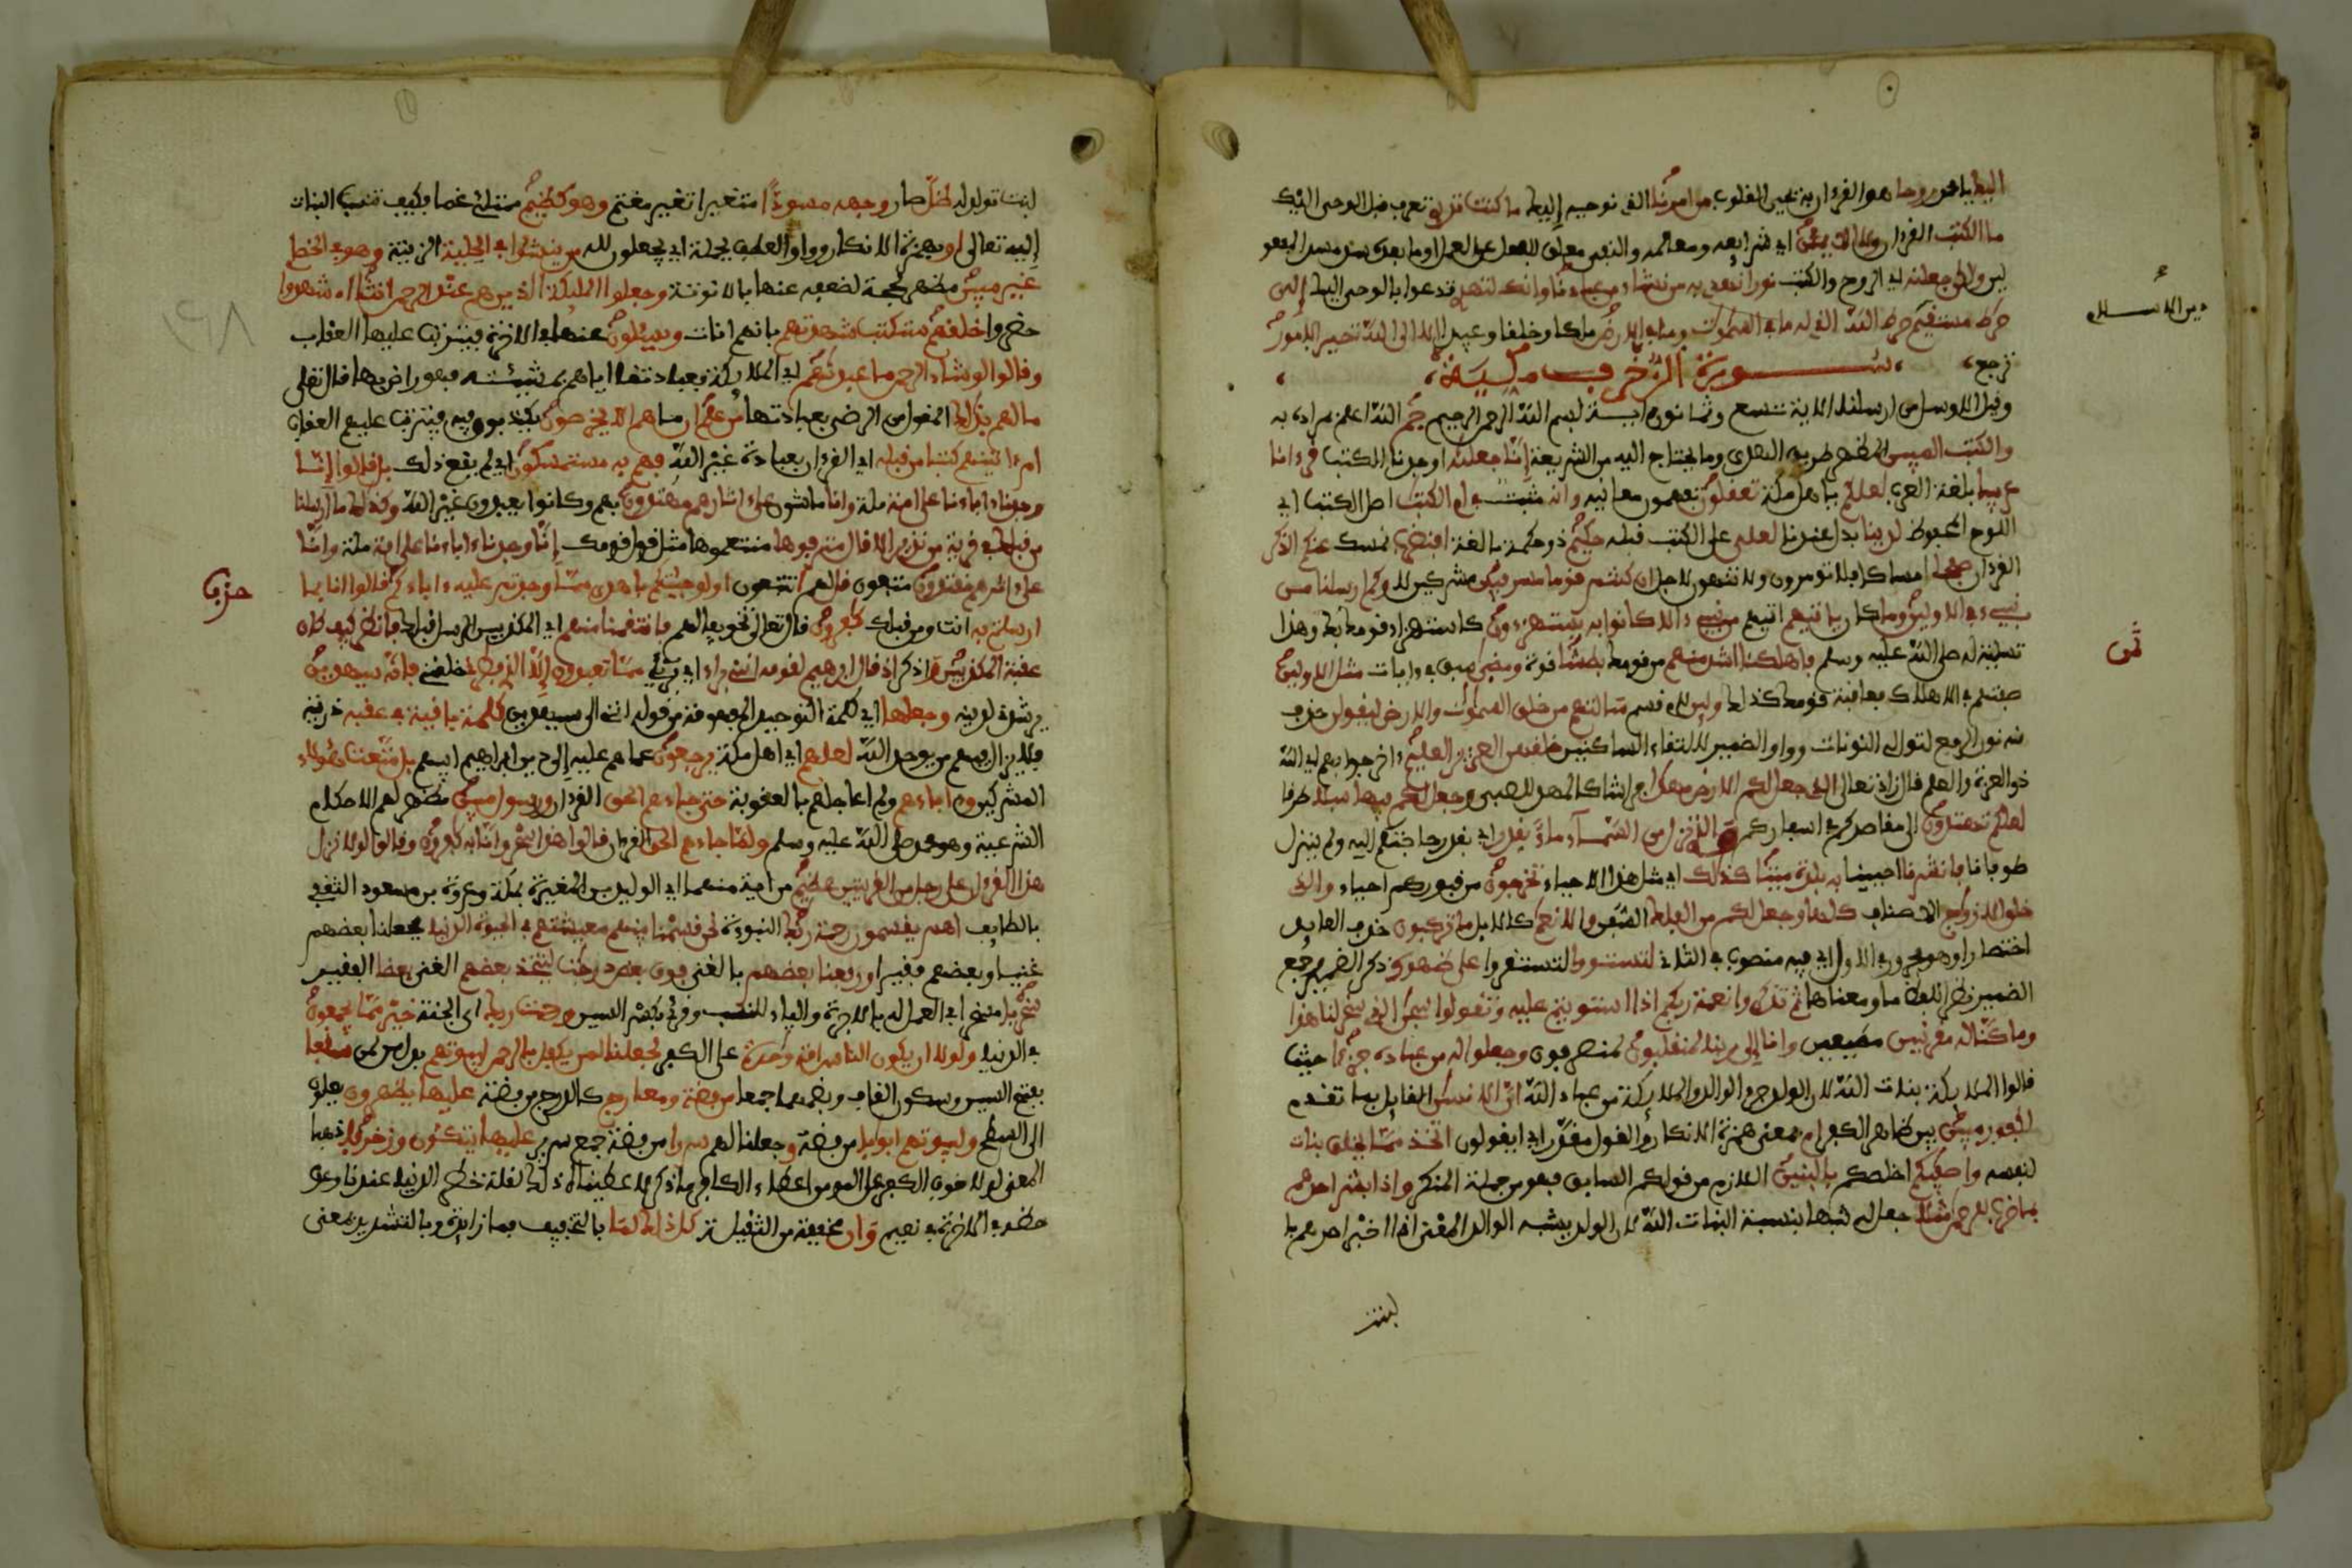 اليك يا محمد روحا هو القرءان به تحيى القلوب من امرنا الذي نوحيه إليك ما كنت تدري تعرف قبل الوحي اليك
ما الكتب القرءان ولا الايمن اي شرايعه ومعالمه والنفي معلق للفعل عن العمل او ما بعده سد مسد المفعو
لين ولكن جعلنه اي الروح والكتب نورا نهدي به من نشاء من عبادنا وانك لتهدي تدعوا بالوحي اليك إلى
صرط مستقيم صرط الله الذي له ما في السموت وما في الارض ملكا وخلقا وعبيدا الا الى الله تصير الامور
ترجع، سورة الزخرف مكية،
دين الاسلام
وقيل الا وسل من ارسلنا الاية تسع وثمانون اية بسم الله الرحمن الرحيم حم الله اعلم بمراده به
والكتب المبين المظهر طريق الهدى وما يحتاج اليه من الشريعة إنا جعلنه اوجدنا الكتب قرءانا
عربيا بلغة العرب لعلكم يا اهل مكة تعقلون تفهمون معانيه وانه مثبت في ام الكتب اصل الكتب اي
اللوح المحفوظ لدينا بدل عندنا لعلي على الكتب قبله حكيم ذو حكمة بالغة افنضرب نمسك عنكم الذكر
القرءان صفحا امساكا فلا تومرون ولا تنهون لاجل ان كنتم قوما مسرفين مشركين لا وكم ارسلنا من
نبيء في الاولين وما كان ياتيهم اتيهم من نبيء الا كانوا به يستهزءون كاستهزاء قومك بك وهذا
ثمن
تسلية له صلى الله عليه وسلم فاهلكنا اشد منهم من قومك بطشا قوة ومضى سبق في ءايات مثل الاولين
صفتهم في الاهلاك فعاقبة قومك كذلك ولين لام قسم سالتهم من خلق السموت والارض ليقولن حذف
منه نون الرفع لتوالي النونات وواو الضمير لالتقاء الساكنين خلقهن العزيز العليم ءاخر جوابهم اي الله
ذو العزة والعلم قال زاد تعالى الذي جعل لكم الارض مهدا فراشا كالمهد للصبي وجعل لكم فيها سبلا طرقا
لعلكم تهتدون الى مقاصدكم في اسفاركم والذي نزل من السماء ماء بقدر اي بقدر حاجتكم اليه ولم ينزله
طوفانا فانشرنا احيينا به بلدة ميتا كذلك اي مثل هذا الاحياء تخرجون من قبوركم احياء والذي
خلق الازواج الاصناف كلها وجعل لكم من الفلك السفن والانعم كالابل ما تركبون حذف العايد
اختصارا وهو مجرور في الاول اي فيه منصوب في الثاني لتستووا لتستقروا على ظهوره ذكر الضمير وجمع
الضمير نظرا للفظ ما ومعناها ثم تذكروا نعمة ربكم اذا استويتم عليه وتقولوا سبحن الذي سخر لنا هذا
وما كنا له مقرنين مطيقين وانا إلى ربنا لمنقلبون لمنصرفون وجعلوا له من عباده جزءا حيث
قالوا الملايكة بنات الله لان الولد جزء الوالد والملايكة من عباد الله ان الانسن القايل بما تقدم
لكفور مبين بين ظاهر الكفر ام بمعنى همزة الانكار والقول مقدر اي ايقولون اتخذ مما يخلق بنات
لنفسه واصفيكم اخلصكم بالبنين اللازم من قولكم السابق فهو من جملة المنكر واذا بشر احدهم
بما ضرب للرحمن مثلا جعل له شبها بنسبة البنات الله لان الولد يشبه الوالد المعنى اذا اخبر احدهم با
لبنت
لبنت تولد له ظل صار وجهه مسودا متغيرا تغير مغتم وهو كظيم ممتلئ غما فكيف تنسب البنات
إليه تعالى او بهمزة الانكار وواو العطف بجملة اي يجعلون لله من ينشؤا في الحلية الزينة وهو في الخصا
غير مبين مظهر لحجة لضعفه عنها بالانوثة وجعلوا الملئكة الذين هم عند الرحمن انثا اءشهدوا
حضروا خلقهم ستكتب شهدتهم بانهم اناث ويسئلون عنها في الاخرة فيترتب عليها العقاب
وقالوا لو شاء الرحمن ما عبدنهم اي الملايكة فعبادتنا اياهم بمشيئته فهو راض بها قال تعلى
ما لهم بذلك المقول من الرضى بعبادتها من علم ان ما هم الا يخرصون يكذبون فيه فيترتب عليهم العقاب
ام ءاتينهم كتبا من قبله اي القرءان بعبادة غير الله فهم به مستمسكون اي لم يقع ذلك بل قالوا إنا
وجدنا ءاباءنا على امة ملة وانا ماشون على ءاثرهم مهتدون بهم وكانوا يعبدون غير الله وكذلك ما ارسلنا
من قبلك في قرية من نذير الا قال مترفوها متنعموها مثل قول قومك إنا وجدنا ءاباءنا على امة ملة وانا
على ءاثرهم مقتدون متبعون قل لهم اتتبعون اولو جئتكم باهدى مما وجدتم عليه ءاباءكم قالوا انا بما
حزب
ارسلتم به انت ومن قبلك كفرون قال تعالى تخويفا لهم فانتقمنا منهم اي المكذبين الرسل قبلك فانظر كيف كان
عقبة المكذبين واذكر اذ قال ابرهيم لقومه انني براء اي بريء مما تعبدون إلا الذي فطرني خلقني فانه سيهدين
يرشدني لدينه وجعلها اي كلمة التوحيد المفهومة من قوله انني الى سيهدين كلمة باقية في عقبه ذريته
فلا يزال فيهم من يوحد الله لعلهم اي اهل مكة يرجعون عما هم عليه إلى دين ابراهيم ابيهم بل متعت هؤلاء
المشركين وءاباءهم ولم اعاجلهم بالعقوبة حتى جاءهم الحق القرءان ورسول مبين مظهر لهم الاحكام
الشرعية وهو محمد صلى الله عليه وسلم ولما جاءهم الحق القرءان قالوا هذا سحر وانا به كفرون وقالوا لولا نزل
هذا القرءان على رجل من القريتين عظيم من اية منهما اي الوليد بن المغيرة بمكة وعروة بن مسعود الثقفي
بالطايف اهم يقسمون رحمة ربك النبوءة نحن قسمنا بينهم معيشتهم في الحيوة الدنيا فجعلنا بعضهم
غنيا وبعضهم فقيرا ورفعنا بعضهم بالغنى فوق بعض درجت ليتخذ بعضهم الغني بعضا الفقير
سخريا مسخرا في العمل له بالاجرة والياء للنسب وقرئ بكسر السين ورحمت ربك اي الجنة خير مما يجمعون
في الدنيا ولولا ان يكون الناس امة وحدة على الكفر لجعلنا لمن يكفر بالرحمن لبيوتهم بدل من لمن سقفا
بفتح السين وسكون القاف وبضمهما جمعا من فضة ومعارج كالدرج من فضة عليها يظهرون يعلو
الى السطح ولبيوتهم ابوابا من فضة وجعلنا لهم سررا من فضة جمع سرير عليها يتكئون وزخرفا ذهبا
المعنى لولا خوف الكفر على المومن من اعطاء الكافر ما ذكر لاعطيناه ذلك لقلة خطر الدنيا عندنا وعدم
حظه في الاخرة في نعيم وان مخففة من الثقيلة كل ذلك لما بالتخفيف فما زايدة وبالتشديد بمعنى
١٦٨